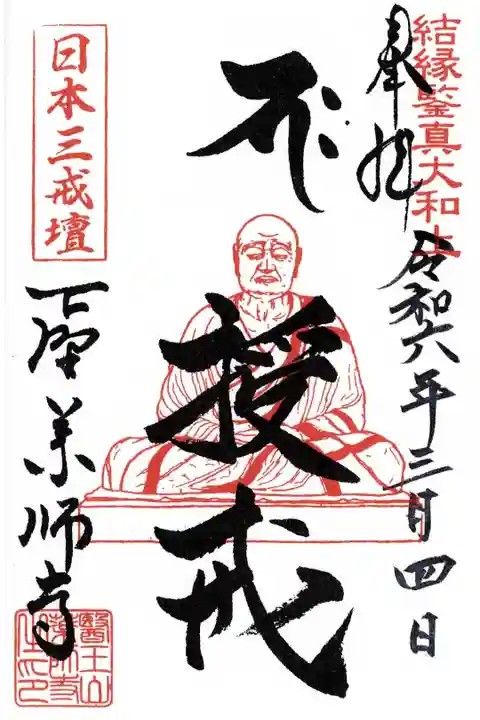 結縁鑒真大和上
奉拝
令和六年三月四日
授戒
日本三戒壇
下野薬師寺
醫王山
薬師寺
之印